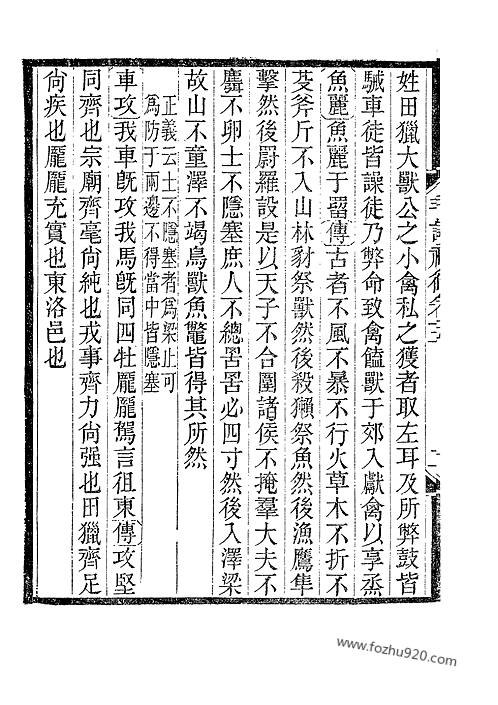 姓田獵大獸公之小禽私之獲者取左耳及所弊鼓皆
駴車徒皆譟徒乃弊命致禽饁獸于郊入獻禽以享烝
魚麗魚麗于罶傳古者不風不暴不行火草木不折不
芟斧斤不入山林豺祭獸然後殺獺祭魚然後漁鷹隼
擊然後罻羅設是以天子不合圍諸侯不掩羣大夫不
麛不卵士不隱塞庶人不總罟罟必四寸然後入澤梁
故山不童澤不竭鳥獸魚鼈皆得其所然
正義云士不隱塞者爲梁止可
爲防于兩邊不得當中皆隱塞
車攻我車旣攻我馬旣同四牡龐龐駕言徂東傳攻堅
同齊也宗廟齊毫尙純也戎事齊力尙强也田獵齊足
尙疾也龐龐充實也東洛邑也
www.fozhu920.com